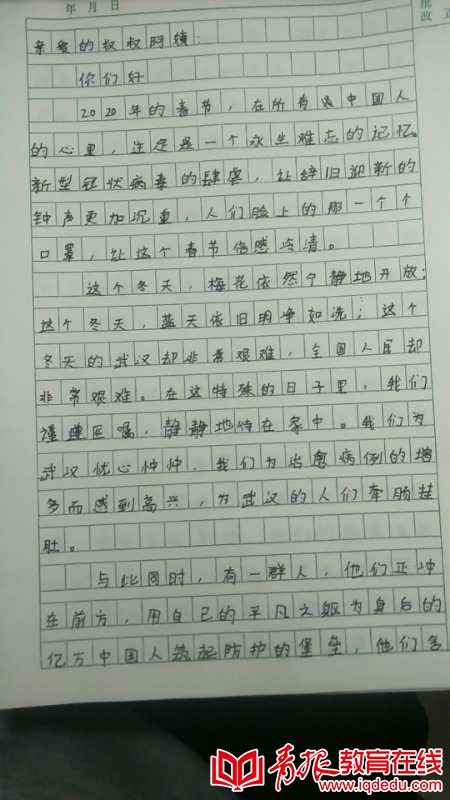 年 月 日
批
改 正
亲爱的叔叔阿姨：
你们好
2020年的春节，在所有 中国人
的心里，注定是一个永生难忘的记忆。
新型冠状病毒的肆虐，让辞旧迎新的
钟声更加沉重，人们脸上的那一个个
口罩，让这个春节倍感冷清。
这个冬天，梅花依然宁静地开放；
这个冬天，蓝天依旧明净如洗；这个
冬天的武汉却非常艰难，全国人民却
非常艰难。在这特殊的日子里，我们
谨遵医嘱，静静地待在家中。我们为
武汉忧心忡忡，我们为治愈病例的增
多而感到高兴，为武汉的人们牵肠挂
肚。
与此同时，有一群人，他们正冲
在前方，用自己的平凡之躯为身后的
亿万中国人筑起防护的堡垒，他们舍
青报教育在线
www.iqdedu.com